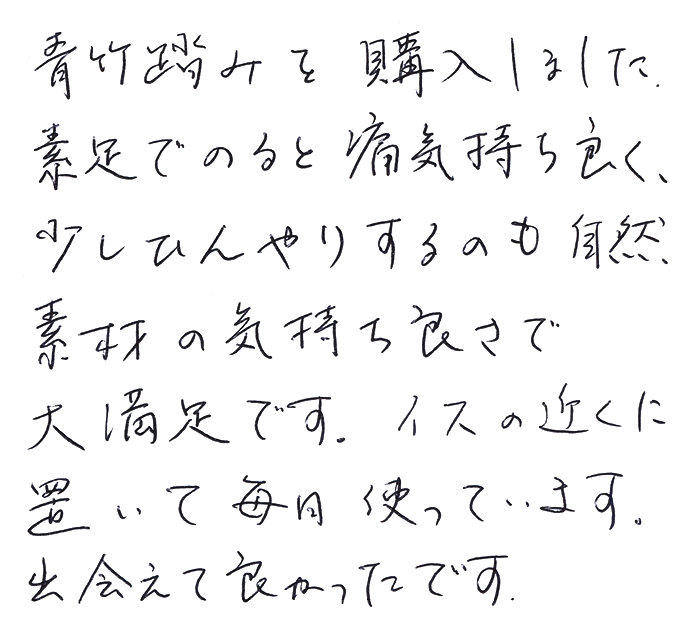 青竹踏みを購入しました.
素足でのると痛気持ち良く、
少しひんやりするのも自然
素材の気持ち良さで
大満足です。イスの近くに
置いて毎日使っています。
出会えて良かったです.